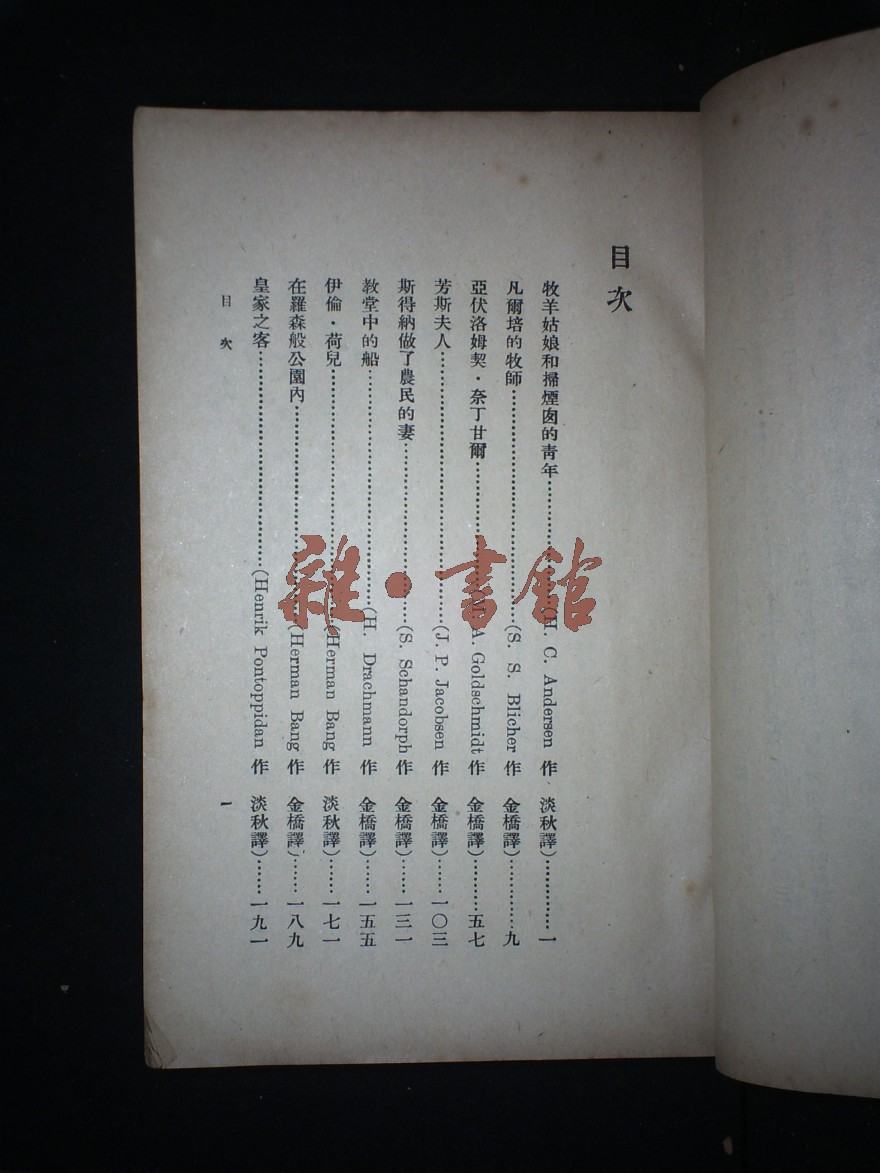 目次
牧羊姑娘和掃煙囱的青年…………(H. C. Andersen 作 淡秋譯)…………一
凡爾培的牧師…………(S. S. Blicher 作 金橋譯)…………九
亞伏洛姆契·奈丁甘爾…………A. Goldschmidt 作 金橋譯)…………五七
芳斯夫人…………(J. P. Jacobsen 作 金橋譯)……一〇三
斯得納做了農民的妻…………(S. Schandorph 作 金橋譯)……一三一
教堂中的船…………(H. Drachmann 作 金橋譯)……一五五
伊倫·荷兒…………(Herman Bang 作 淡秋譯)……一七一
在羅森般公園內…………(Herman Bang 作 金橋譯)……一八九
皇家之客…………(Henrik Pontoppidan 作 淡秋譯)……一九一
目次
一
雜·書館